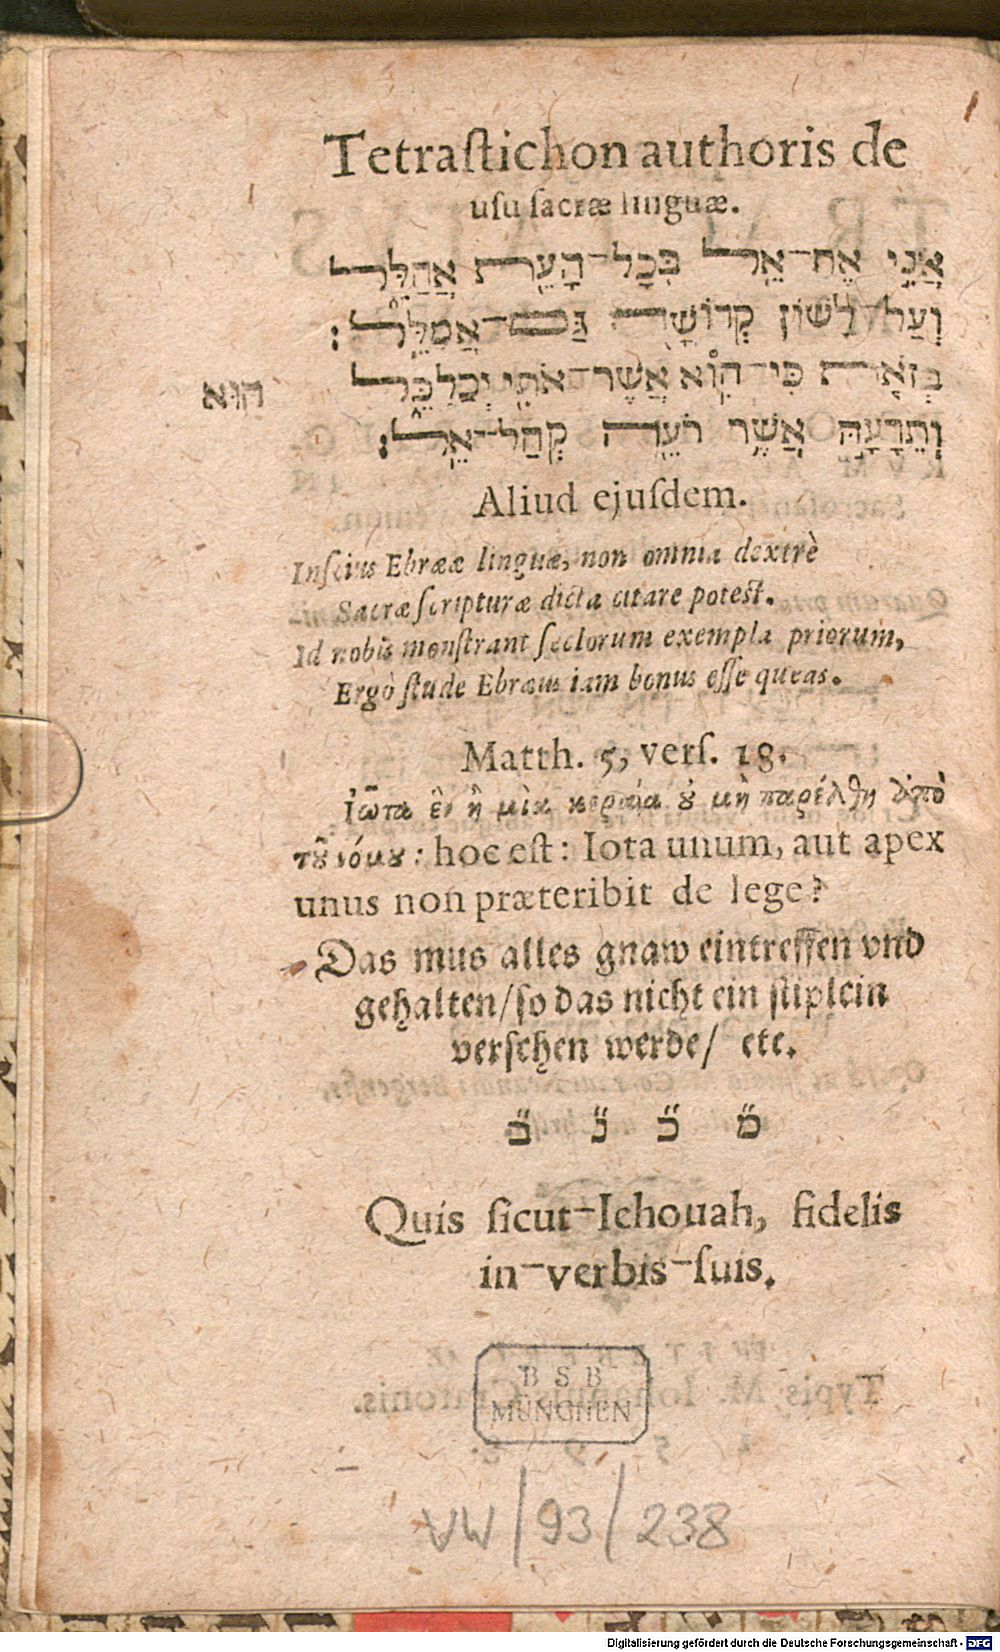 Tetraſtichon authoris de
uſu ſacræ linguæ.
אֲנִי אֶת־אֵל בְּכָל־הָעֵת אֲהַלֵּל
וְעַל לָשׁוֹן קְדוֹשָׁה בַּם־אֲמַלֵּל׃
בְּזֹאת כִּי־הוּא אֲשֶׁר־אֹתִי יְכַלְכֵּל
הוּא
אֲשֶׁר רֹעֶה קְהַל־אֵל׃
Aliud ejuſdem.
Inſcius Ebrææ linguæ, non omnia dextrè
Sacræ ſcripturæ dicta citare poteſt.
Id nobis monſtrant ſeclorum exempla priorum,
Ergò ſtude Ebræus iam bonus eſſe queas.
Matth. 5, verſ. 18.
ἰῶτα ἓν ἢ μία κεραία ȣ μὴ παρέλθη ἀπὸ
τȣ͂ νόμȣ : hoc eſt : Iota unum, aut apex
unus non præteribit de lege?
Das mus alles gnaw eintreffen vnd
gehalten/ ſo das nicht ein ſtiplein
verſehen werde/ etc.
מ̎ כ̎ נ̎ ב̎
Quis ſicut-Iehouah, fidelis
in-verbis-ſuis.
B S B
MÜNCHEN
VW/93/238
Digitalisierung gefördert durch die Deutsche Forschungsgemeinschaft - DFG